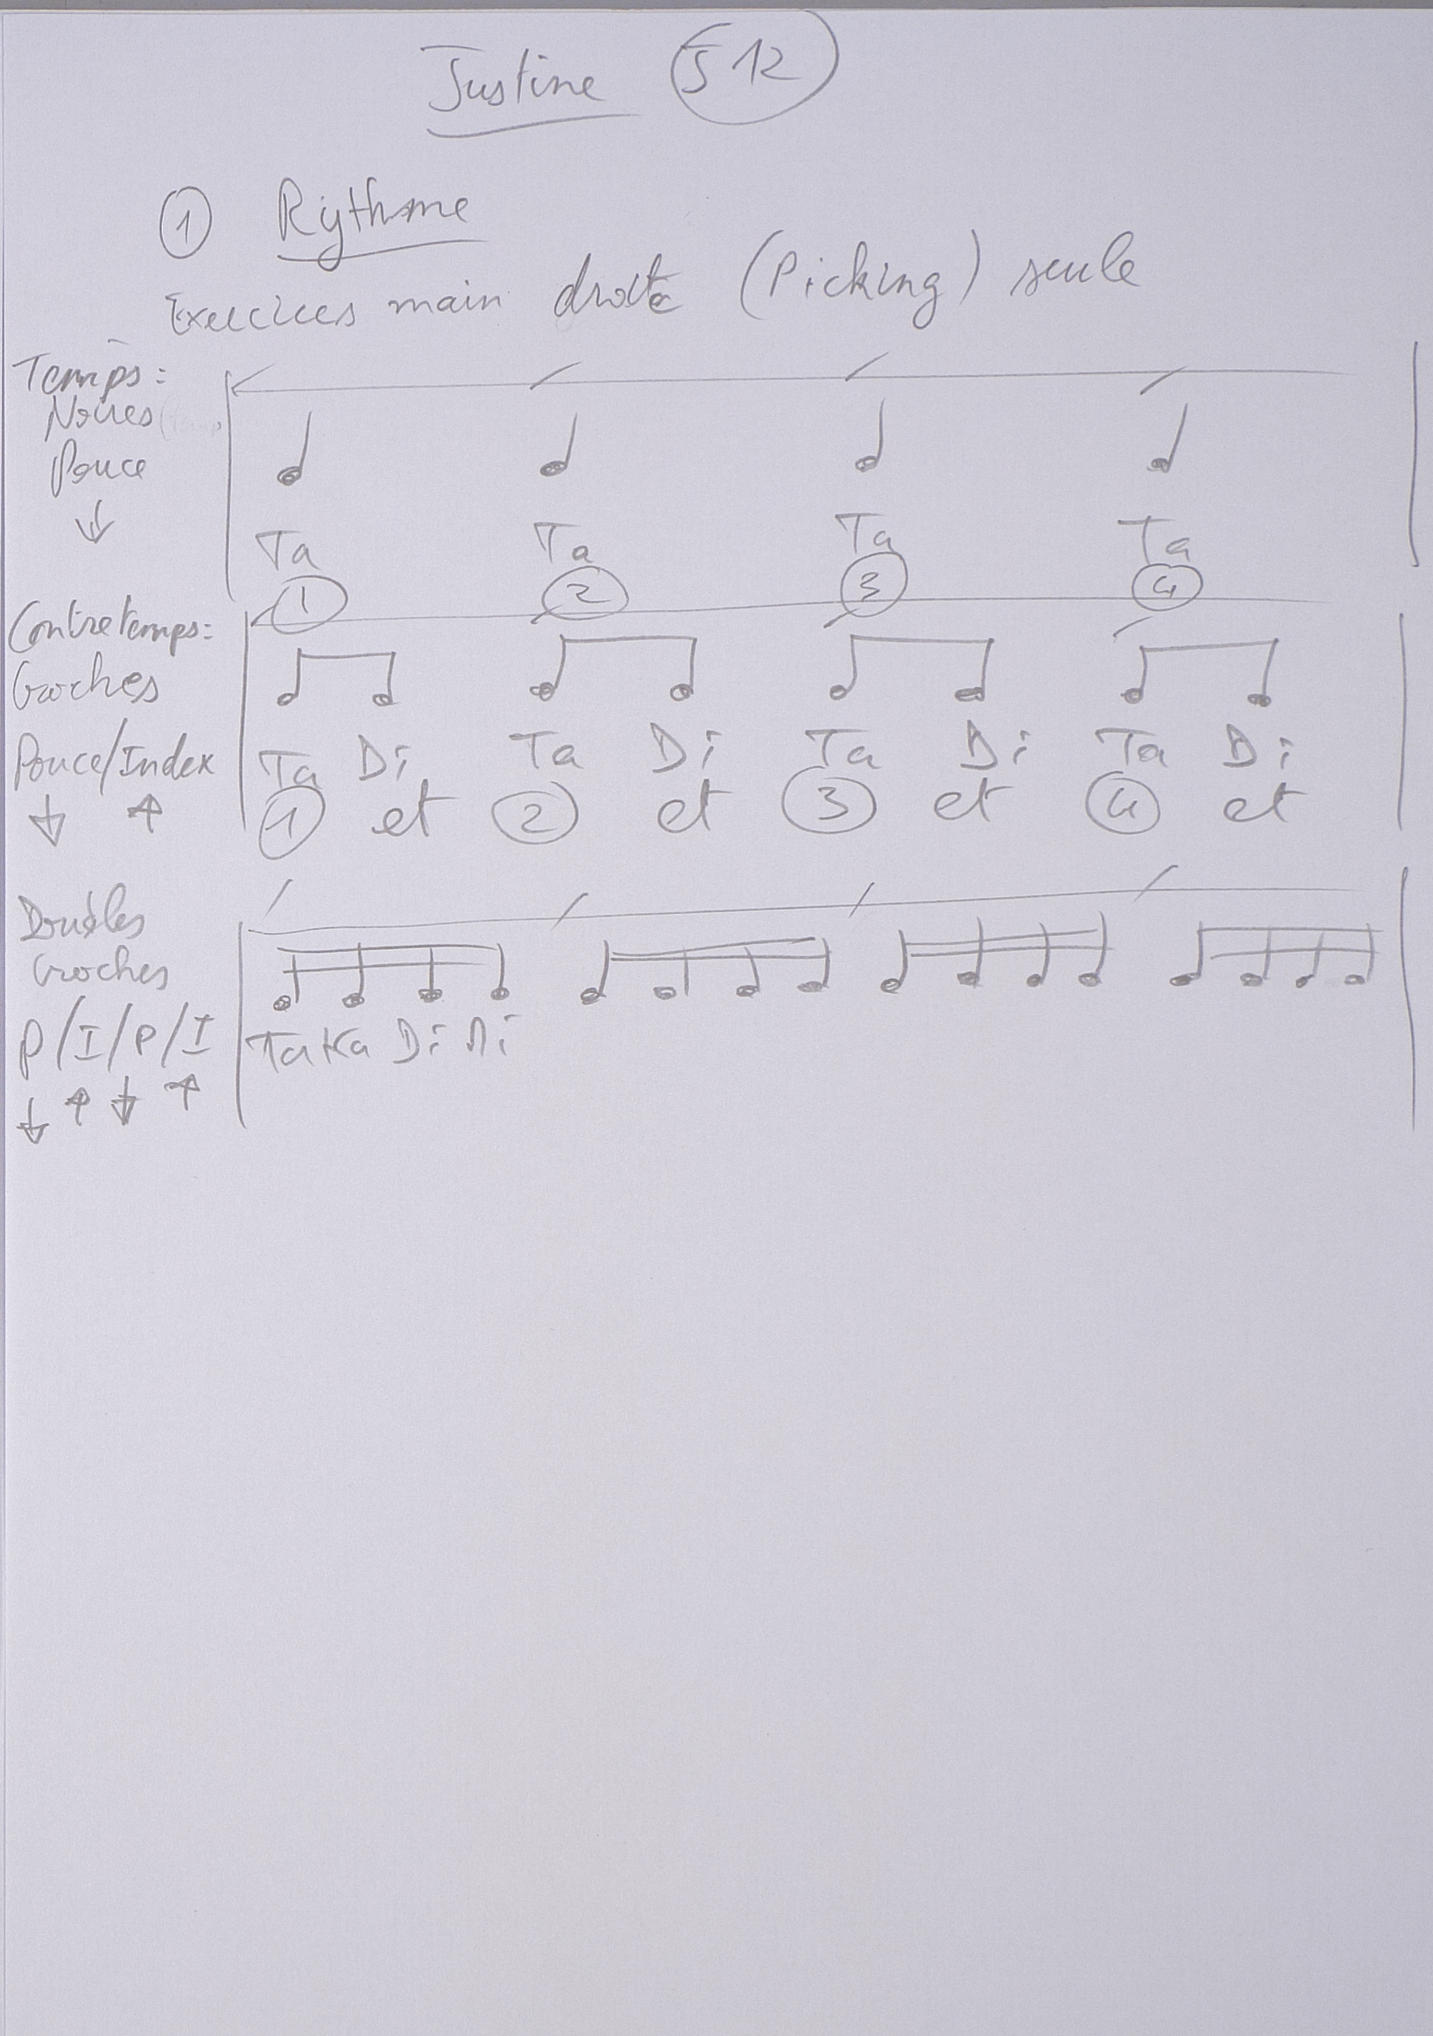 Justine J 12
1 Rythme
Exercices main droite (Picking) seule
Temps:
Noires
Pouce
↓
Ta Ta Ta Ta
1 2 3 4
Contretemps:
Croches
Pouce/Index
↓ ↑
Ta Di Ta Di Ta Di Ta Di
1 et 2 et 3 et 4 et
Doubles
Croches
P/I/P/I
↓ ↑ ↓ ↑
Ta Ka Di Mi